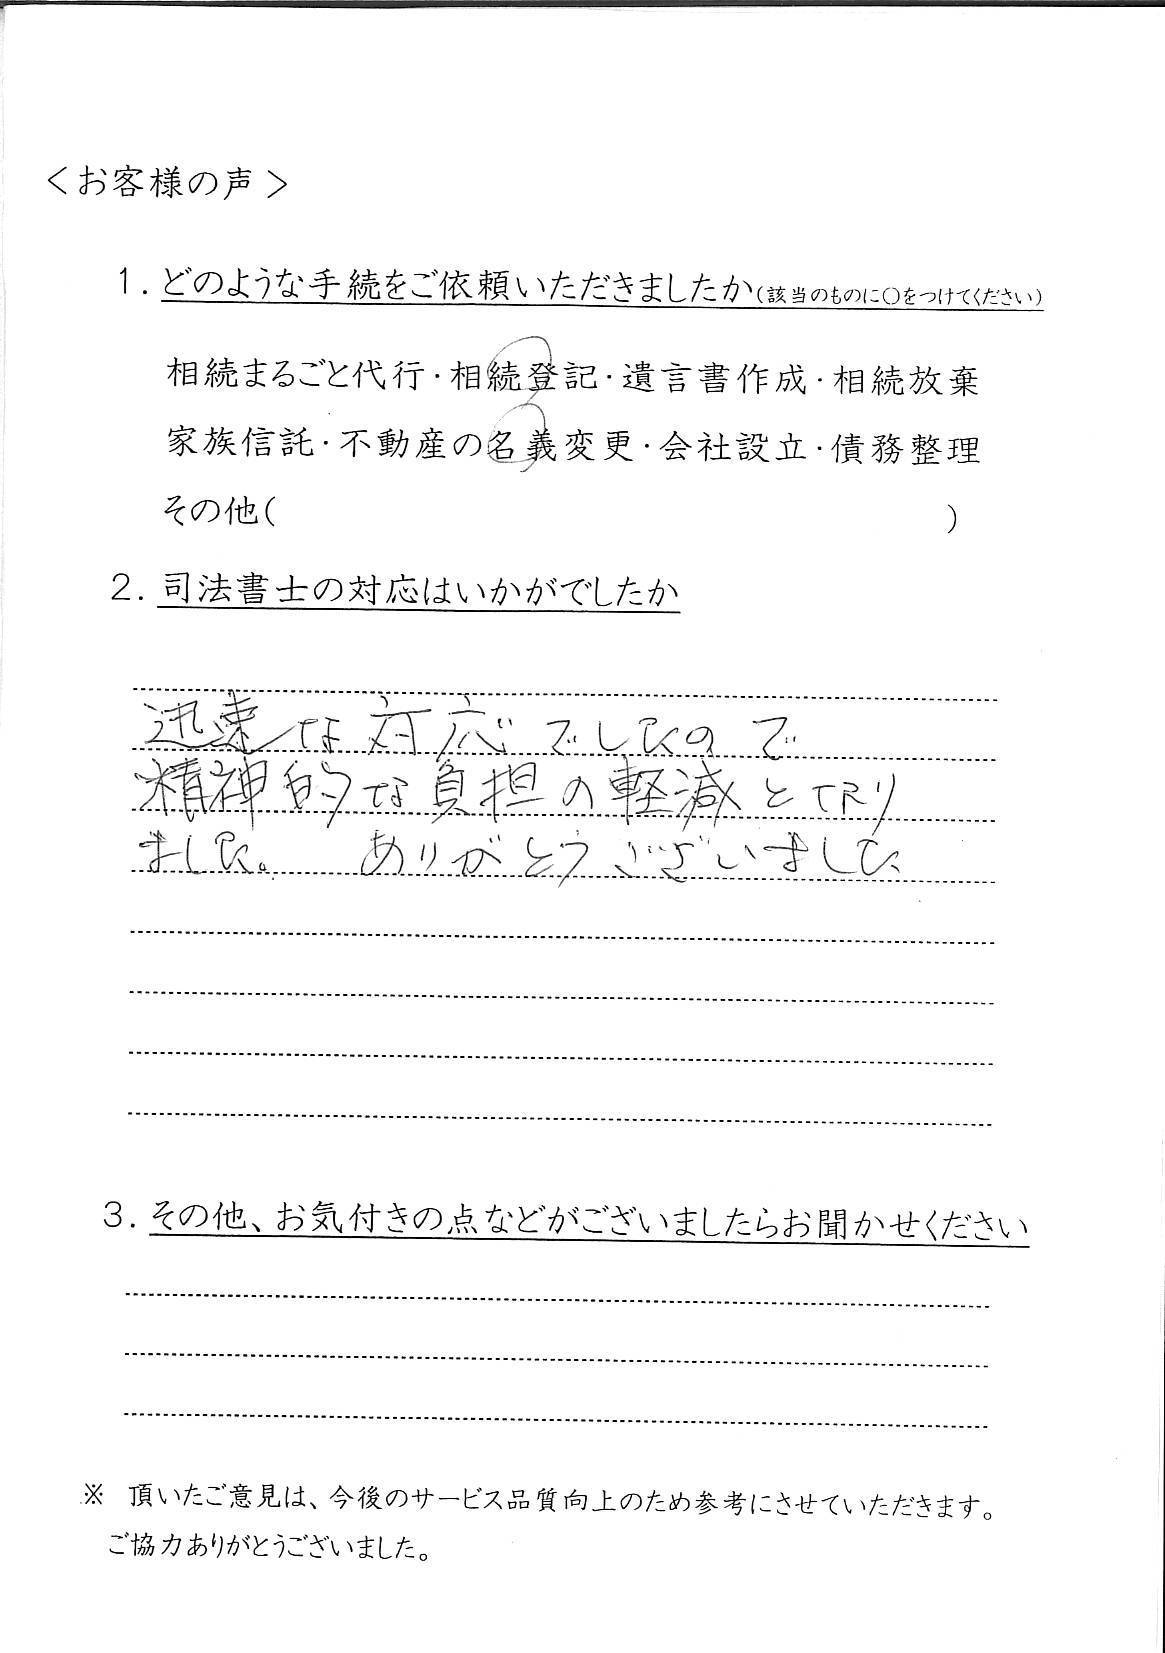 ＜お客様の声＞
1. どのような手続をご依頼いただきましたか(該当のものに○をつけてください)
相続まるごと代行・相続登記・遺言書作成・相続放棄
家族信託・不動産の名義変更・会社設立・債務整理
その他( )
2. 司法書士の対応はいかがでしたか
迅速な対応でしたので
精神的な負担の軽減となり
ました。 ありがとうございました
3. その他、お気付きの点などがございましたらお聞かせください
※ 頂いたご意見は、今後のサービス品質向上のため参考にさせていただきます。
ご協力ありがとうございました。